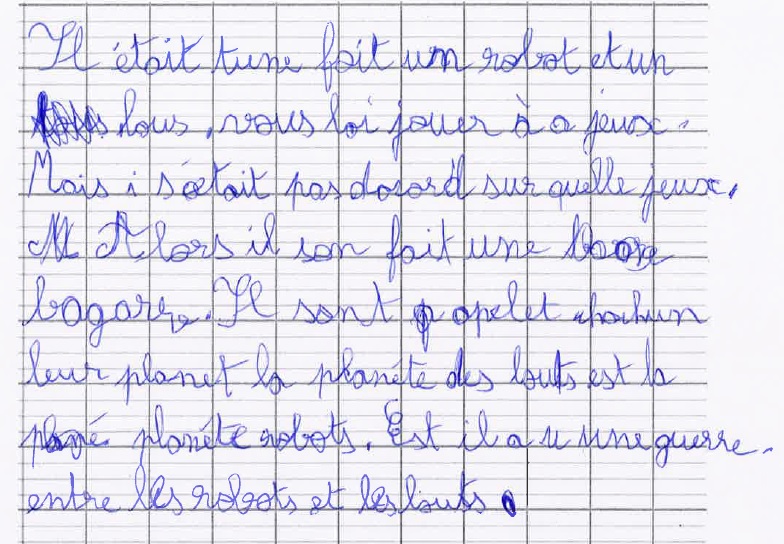 Il était tune foit un robot et un
lous, vous loi jouer à a jeux.
Mais i s'était pas dacord sur quelle jeux.
Alors il son fait une
bagare. Il sont apelet chachun
leur planet la planéte des louts est la
planéte robots. Est il a u une guerre.
entre les robots et les louts.